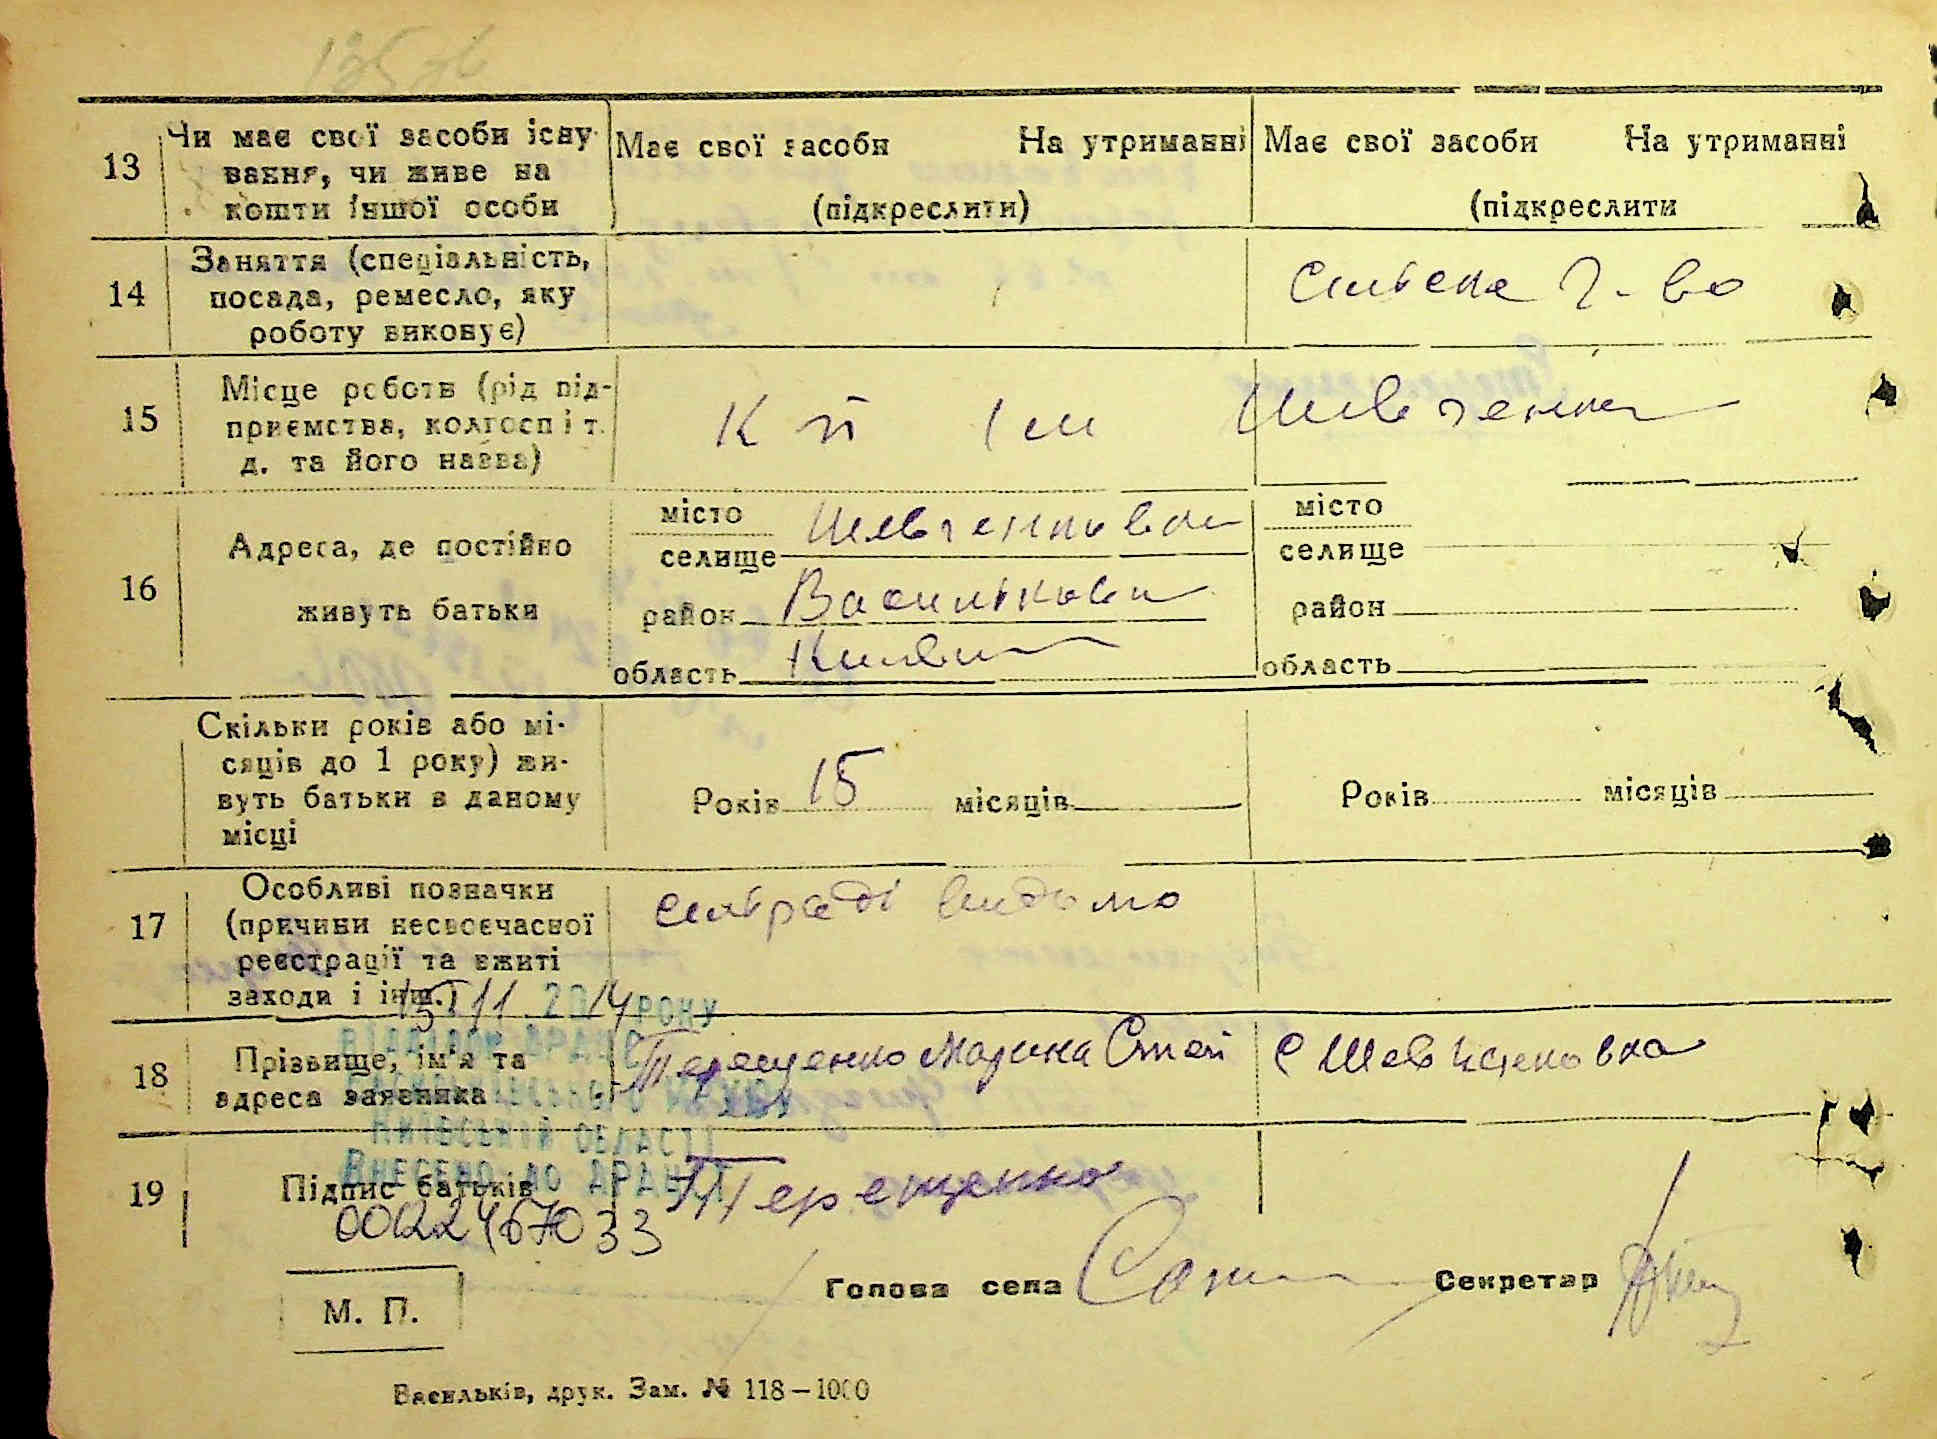 13
Чи має свої засоби існу-
вання, чи живе на
кошти іншої особи
Має свої засоби На утриманні
(підкреслити)
Має свої засоби На утриманні
(підкреслити
14
Заняття (спеціальність,
посада, ремесло, яку
роботу виконує)
15
Місце роботи (рід під-
приємства, колгосп і т.
д. та його назва)
ім Шевченка
16
Адреса, де постійно
живуть батьки
місто
селище Шевченковка
район Васильковск
область Киевск
місто
селище
район
область
Скільки років або мі-
сяців до 1 року) жи-
вуть батьки в даному
місці
Років 15 місяців
Років місяців
17
Особливі позначки
(причини несвоєчасної
реєстрації та вжиті
заходи і інш.)
сільраді видомо
15 11 2014 РОКУ
ВІДДІЛОМ ДРАЦС
КИЇВСЬКІЙ ОБЛАСТІ
ВНЕСЕНО ДО ДРАЦСГ
00122467033
18
Прізвище, ім'я та
адреса заявника
Терещенко Марина Степ
с Шевченковка
19
Підпис батьків
Терещенко
М. П.
Голова села
Секретар
Васильків, друк. Зам. № 118—1000